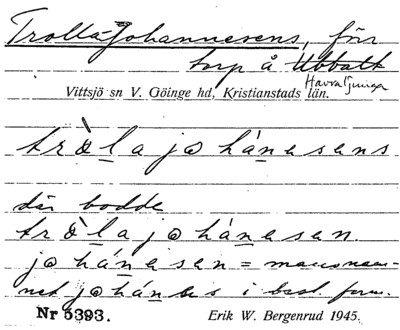 Trolla-Johannesens, förs
torp å Ubbalt
Havraljunga
Vittsjö sn V. Göinge hd, Kristianstads län.
trò̀la johánesens
där bodde
trò̀la johánesen.
johánesen = mansnam-
net johánes i best. form.
Nr 5393. Erik W. Bergenrud 1945.